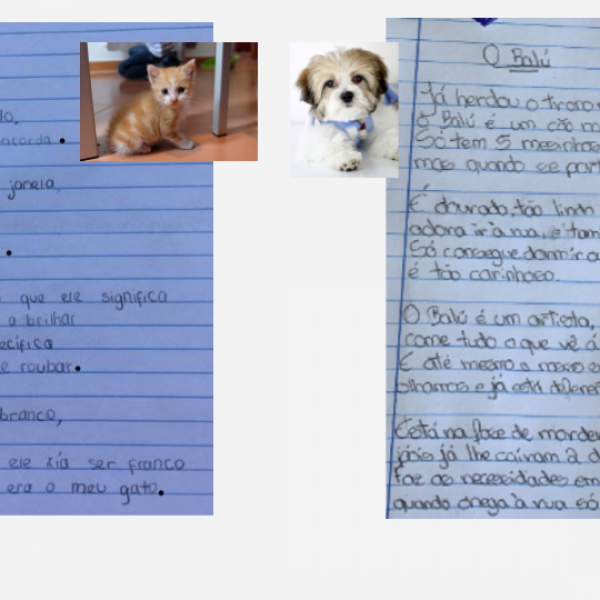 do,
oncorda.
janela,
que ele significa
o brilhar
ecífica
e roubar.
branco,
ele xia ser franco
era o meu gato.
O Balú
Já herdou o trono
O Balú é um cão m
Só tem 5 mesinhos
mas quando se port
É dourado, tão lindo
adora ir à rua, e tam
Só consegue dormir a
é tão carinhoso.
O Balú é um artista,
come tudo o que vê á
E até mesmo o mano e
olhamos e já está diferen
Está na fase de morder
já lhe caíram 2 d
faz as necessidades em
quando chega à rua só